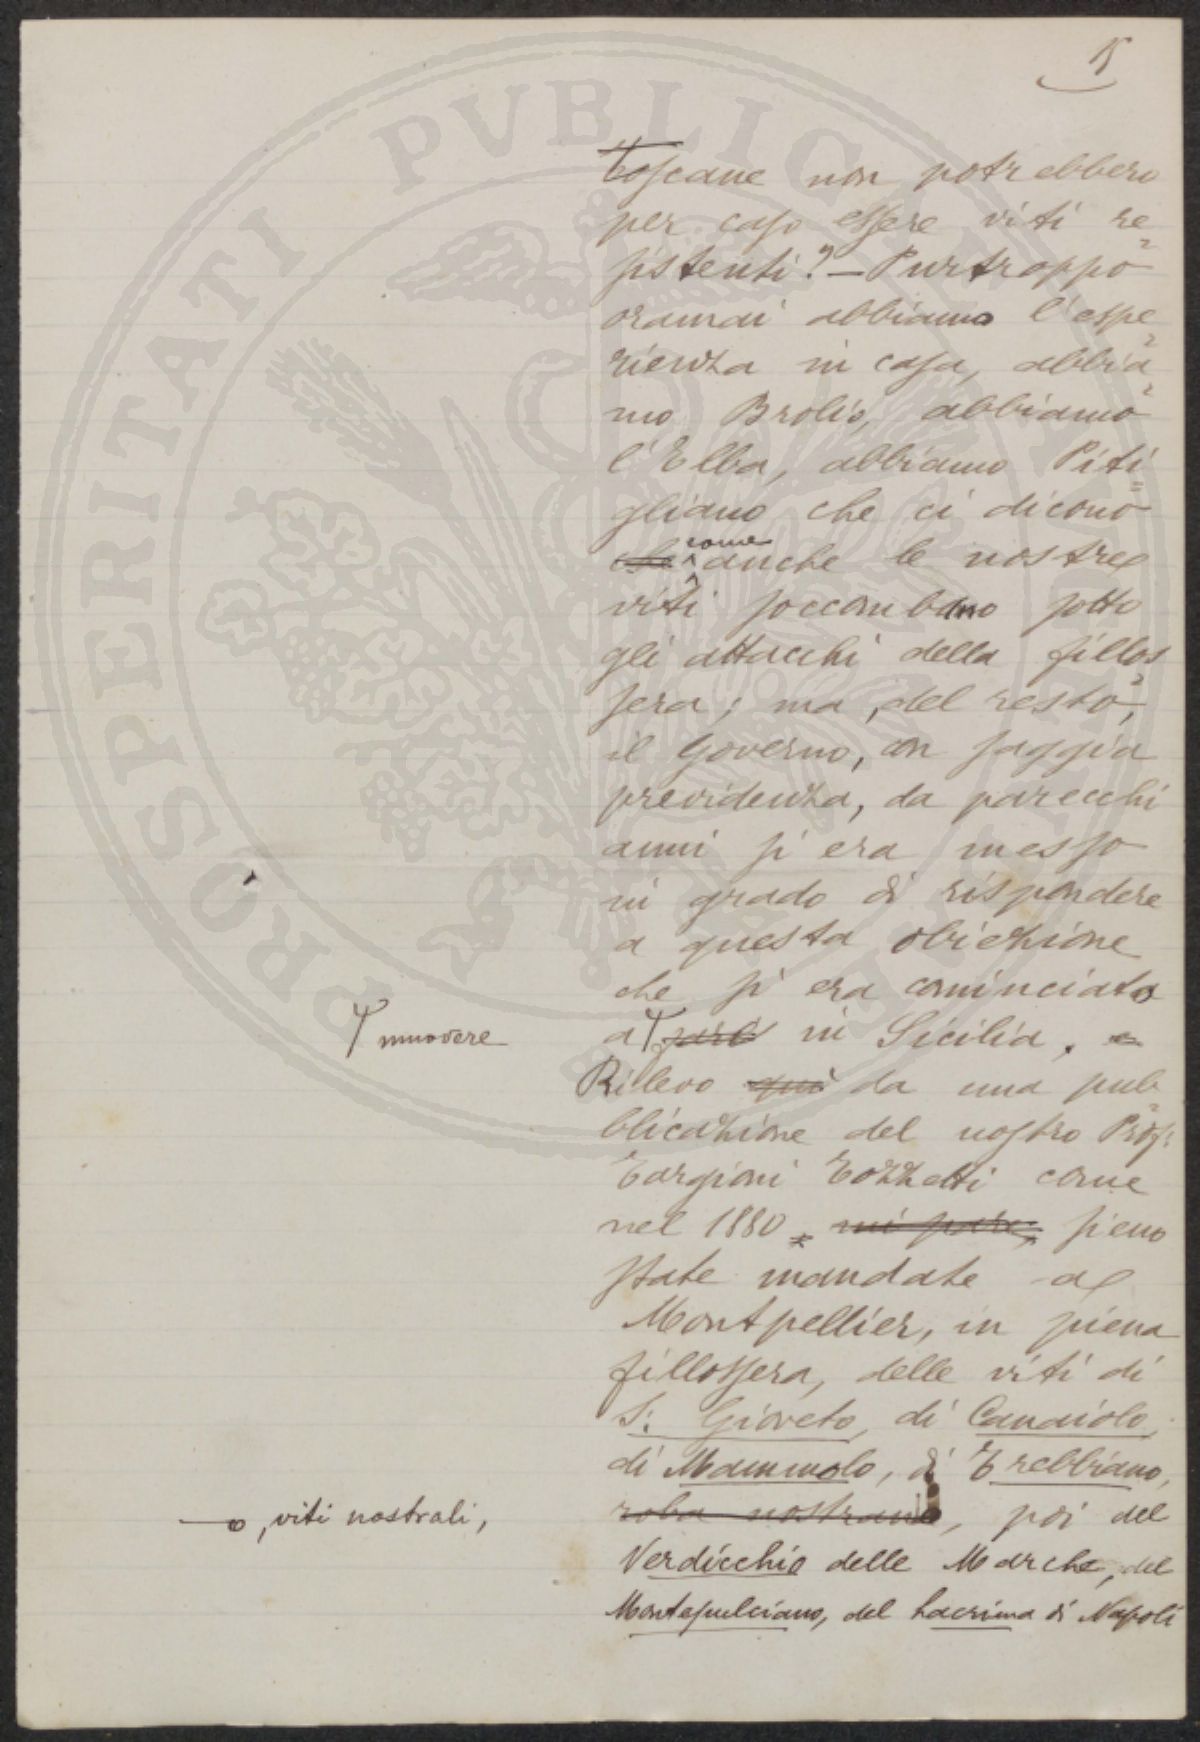 15
Toscane non potrebbero
per caso essere viti re=
sistenti? — Purtroppo
oramai abbiamo l'espe=
rienza in casa, abbia=
mo Brolio, abbiamo
l'Elba, abbiamo Piti=
gliano che ci dicono
che come anche le nostre
viti soccombano sotto
gli attacchi della fillos=
sera; ma, del resto,
il Governo, con saggia
previdenza, da parecchi
anni si era messo
in grado di rispondere
a questa obiezione
che si era cominciato
muovere
a in Sicilia.
Rilevo qui da una pub=
blicazione del nostro Prof.
Targioni Tozzetti come
nel 1880 mi pare, sieno
state mandate a
Montpellier, in piena
fillossera, delle viti di
S. Gioveto, di Canaiolo,
di Mammolo, di Trebbiano,
, viti nostrali,
roba nostrana, poi del
Verdicchio delle Marche, del
Montepulciano, del Lacrima di Napoli
PROSPERITATI PUBLICAE